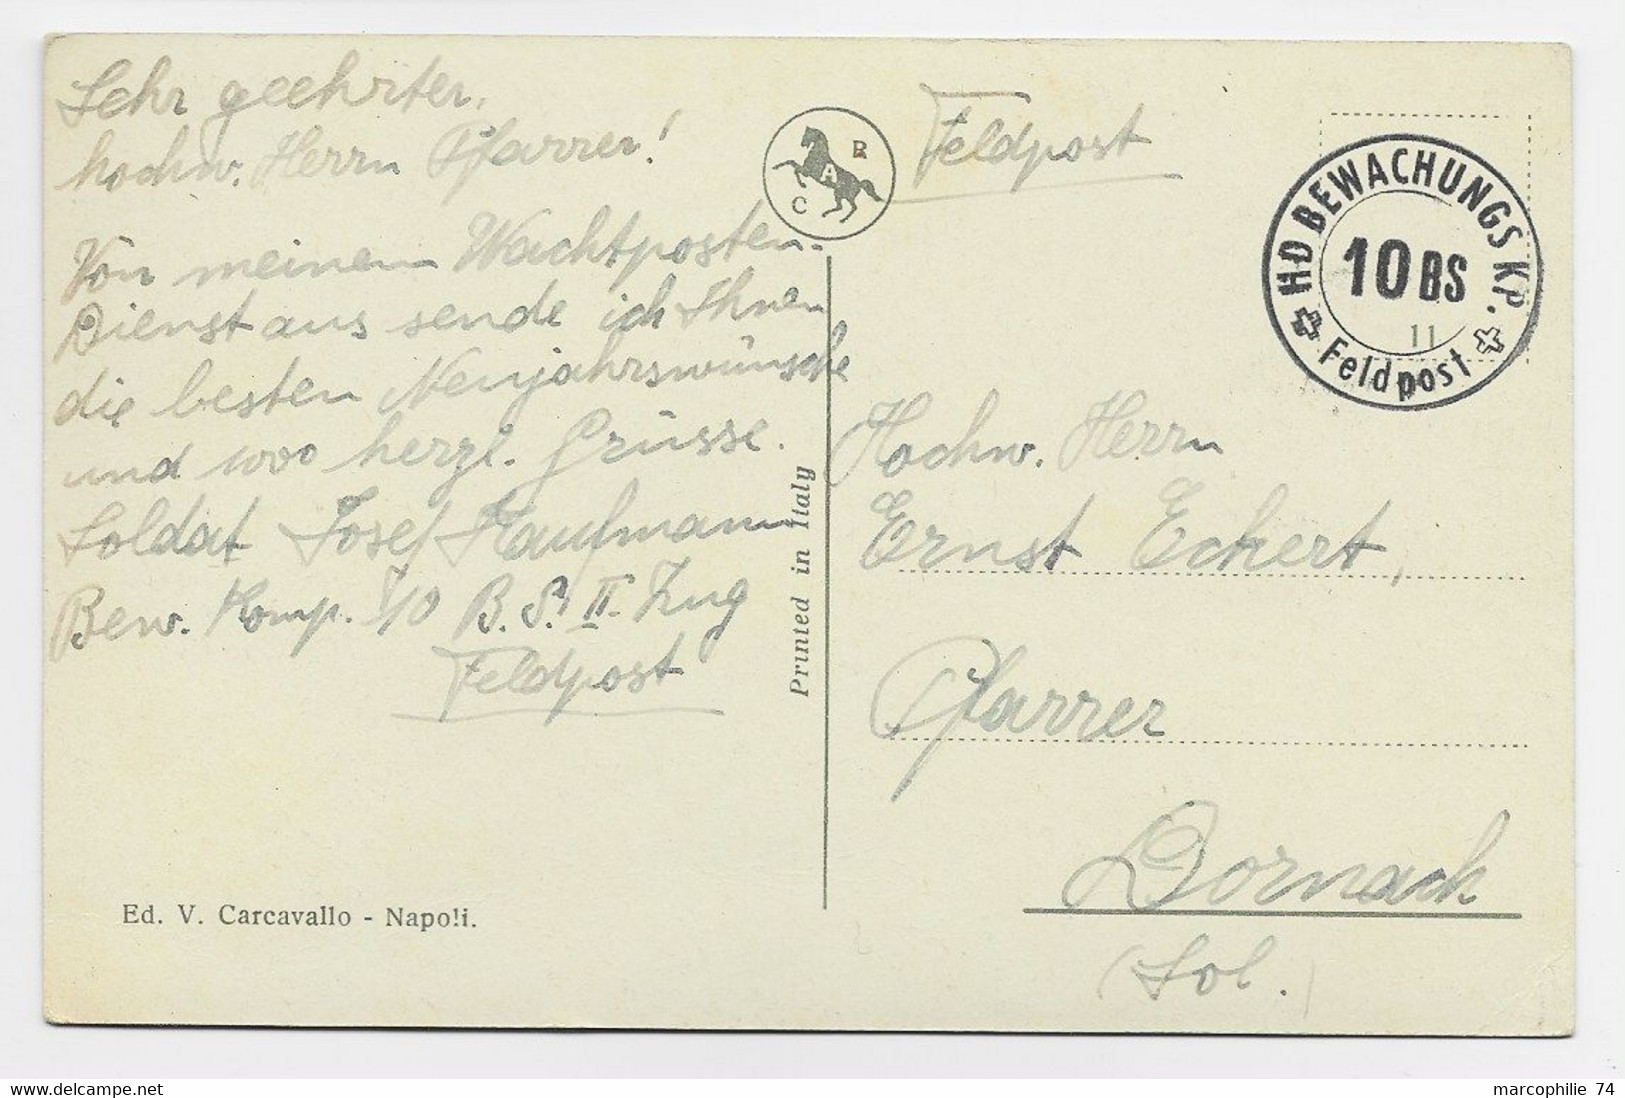 Sehr geehrter,
hochw. Herrn Pfarrer!
Von meinem Wachtposten-
Dienst aus sende ich Ihnen
die besten Neujahrswünsche
und 1000 herzl. Grüsse.
Soldat Josef Kaufmann
Bew. Komp. /10 B.S. II. Zug
Feldpost
Ed. V. Carcavallo - Napoli.
Printed in Italy
R
A
C
Feldpost
HD BEWACHUNGS KP.
10 BS
11
Feldpost
Hochw. Herrn
Ernst Eckert,
Pfarrer
Dornach
(Sol.)
marcophilie 74